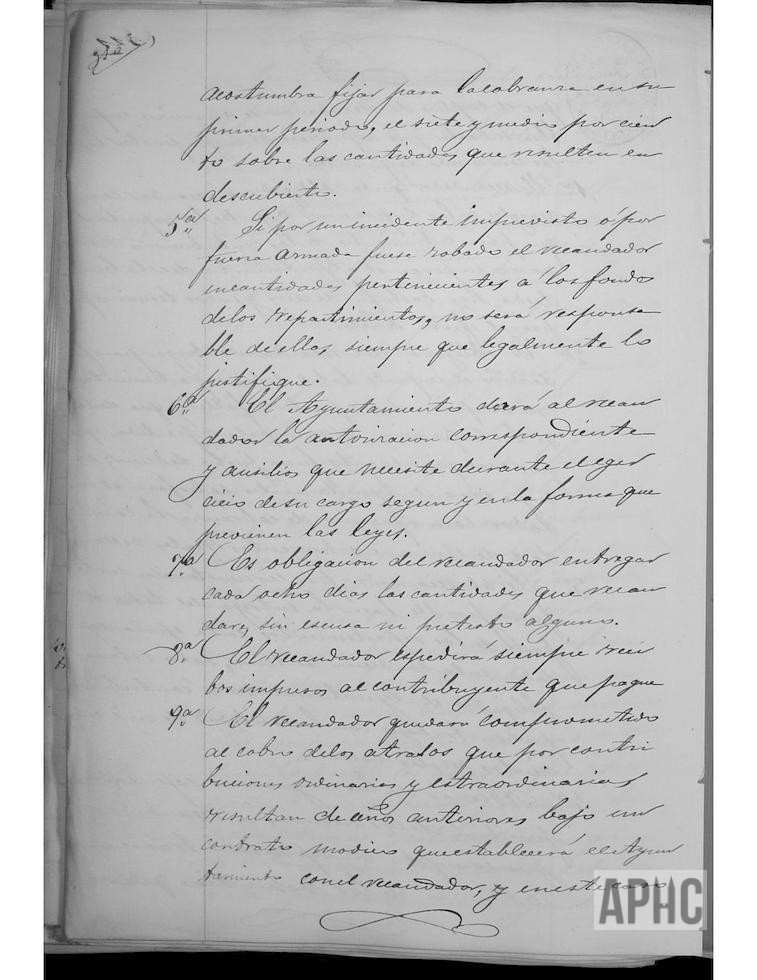 acostumbra fijar para la cobranza en su
primer periodo, el siete y medio por cien
to sobre las cantidades que resulten en
descubierto.
5ª Si por un incidente imprevisto ó por
fuerza armada fuese robado el recaudador
en cantidades pertenecientes á los fondos
de los repartimientos, no será responsa
ble de ellas siempre que legalmente lo
justifique.
6ª El Ayuntamiento dará al recau
dador la autorizacion correspondiente
y ausilios que necesite durante el eger
cicio de su cargo segun y en la forma que
previenen las leyes.
7ª Es obligacion del recaudador entregar
cada ocho dias las cantidades que recau
dare, sin escusa ni pretesto alguno.
8ª El recaudador espedirá siempre reci
bos impresos al contribuyente que pague
9ª El recaudador quedará comprometido
al cobro de los atrasos que por contri
buciones ordinarias y estraordinarias
resultan de años anteriores bajo un
contrato modico que establecerá el Ayun
tamiento con el recaudador, y en este caso
APHC